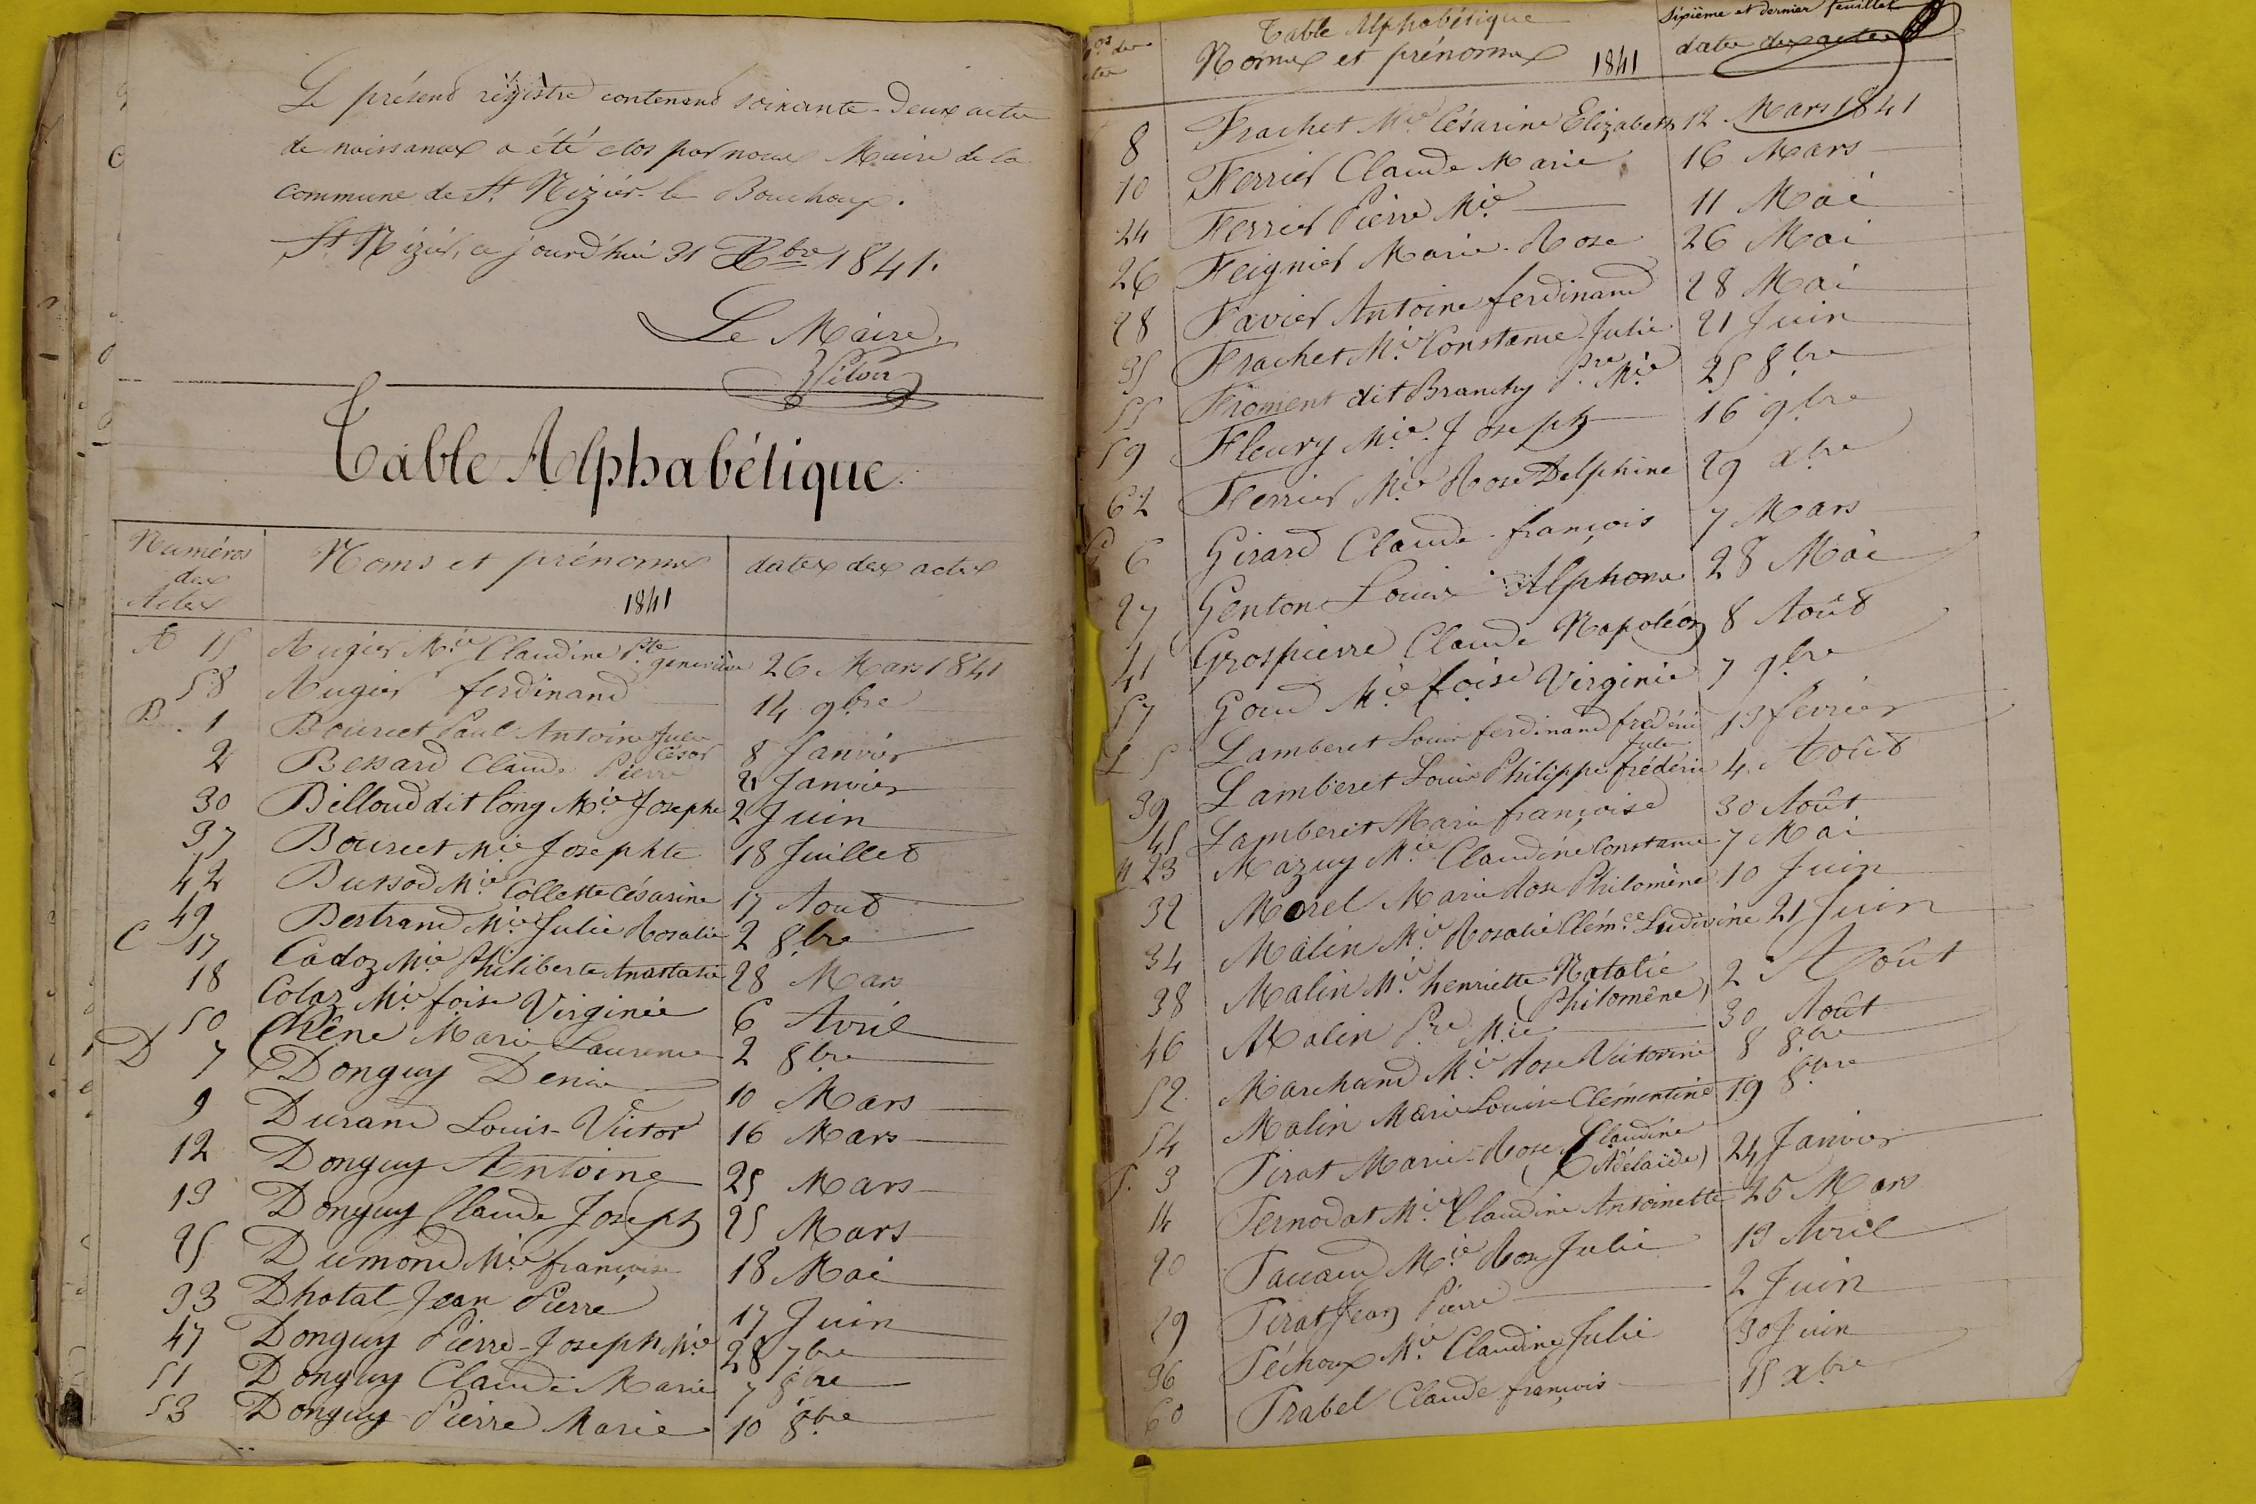 Le présent régistre contenant soixante-deux actes
de naissances a été clos par nous Maire de la
commune de St Nizier-le Bouchoux.
St Nizier, ce jourd'hui 31 Xbre 1841.
Le Maire,
Table Alphabétique.
Numéros des Actes
Noms et prénoms 1841
dates des actes
A 15 Augier Mie Claudine Pte geneviève 26 Mars 1841
58 Augier ferdinand 14 9bre
B. 1 Bourcet Paul Antoine Jules César 8 Janvier
2 Bessard Claude Pierre 21 Janvier
30 Billoud dit long Mie Josephe 2 Juin
37 Bourcet Mie Josephte 18 Juillet
42 Butsod Mie Collette Césarine 17 Aout
49 Bertrand Mie Julie Rosalie 2 8bre
C 17 Cadoz Mie Philiberte Anastasie 28 Mars
18 Colaz Mie foise Virginie 6 Avril
50 Chêne Marie Laurence 2 8bre
D 7 Donguy Denis 10 Mars
9 Durand Louis-Victor 16 Mars
12 Donguy Antoine 25 Mars
13 Donguy Claude Joseph 25 Mars
25 Dumond Mie françoise 18 Mai
33 Dhotal Jean Pierre 17 Juin
47 Donguy Pierre-Joseph Mie 28 7bre
51 Donguy Claude Marie 7 8bre
53 Donguy Pierre Marie 10 8bre
Table Alphabétique
Sixième et dernier feuillet
Nos des actes
Noms et prénoms 1841
dates des actes
8 Frachet Mie Césarine Elizabeth 12 Mars 1841
10 Ferrier Claude Marie 16 Mars
24 Ferrier Pierre Mie 11 Mai
26 Feignier Marie-Rose 26 Mai
28 Favier Antoine ferdinand 28 Mai
35 Frachet Mie Constance Julie 21 Juin
55 Froment dit Branchy Pre Mie 25 8bre
59 Fleury Mie Joseph 16 9bre
62 Ferrier Mie Rose Delphine 29 xbre
G 6 Girard Claude-françois 7 Mars
27 Genton Louis Alphonse 28 Mai
41 Grospierre Claude Napoléon 8 Août
57 Goud Mie foise Virginie 7 9bre
L 5 Lamberet Louis ferdinand frédéric 13 fevrier
39 Lamberet Louis Philippe frédéric Jules 4 Août
45 Lamberet Marie françoise 30 Août
M 23 Mazuy Mie Claudine Constance 7 Mai
32 Morel Marie Rose Philomène 10 Juin
34 Malin Mie Rosalie Clémce Ludivine 21 Juin
38 Malin Mie henriette Natalie (Philomène) 2 Août
46 Malin Pre Mie 30 Août
52 Marchand Mie Rose Victorine 8 8bre
54 Malin Marie Louise Clémentine 19 8bre
P. 3 Pirat Marie-Rose Claudine (Adélaïde) 24 Janvier
14 Pernodat Mie Claudine Antoinette 25 Mars
20 Paccaud Mie Rose Julie 19 Avril
29 Pirat Jean Pierre 2 Juin
36 Péchoux Mie Claudine Julie 30 Juin
60 Prabel Claude françois 15 xbre